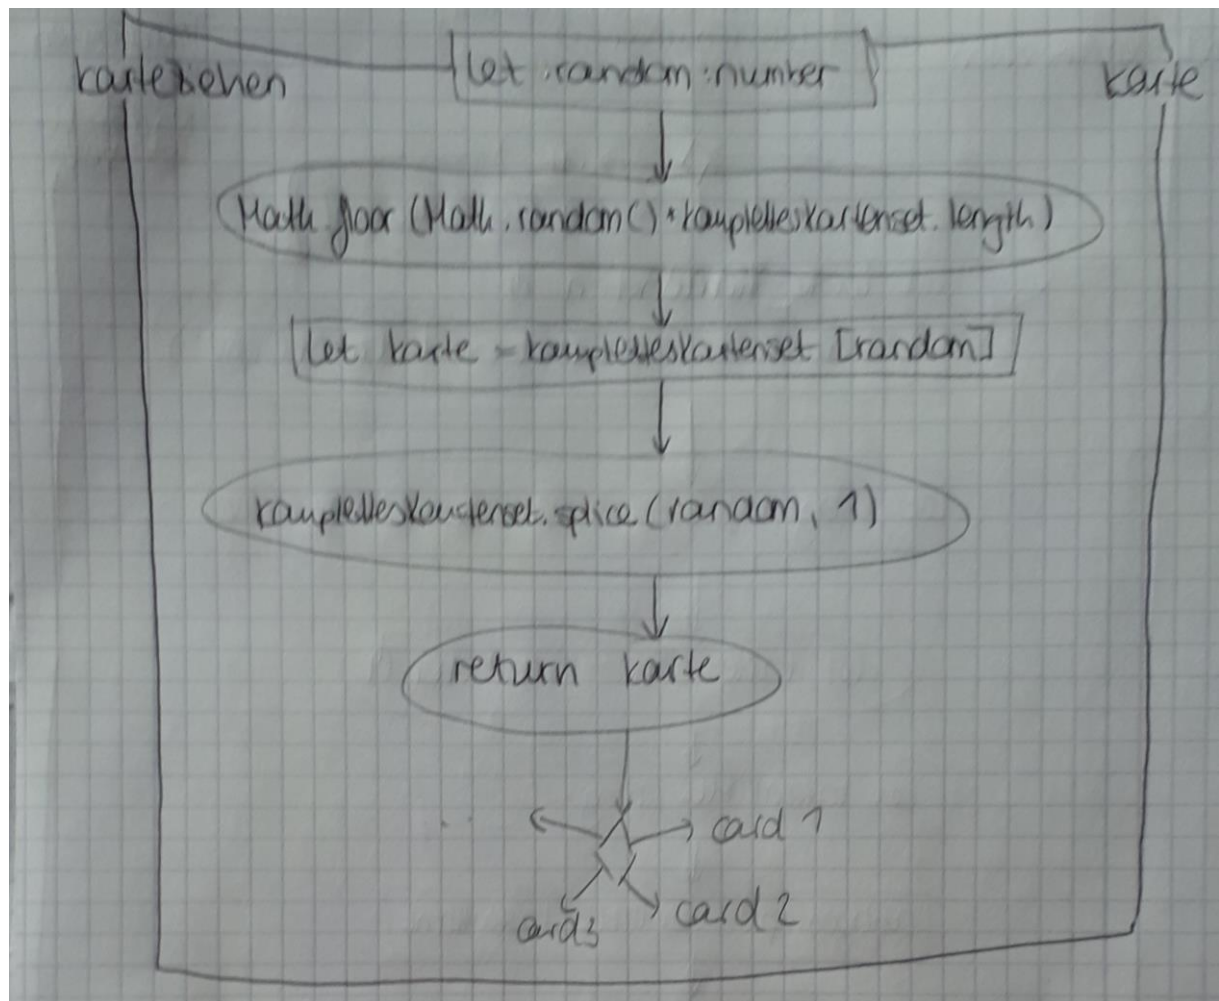 karteziehen
let random:number
karte
Math floor (Math.random() * kamplelleskartenset.length)
let karte = kampletteskartenset [random]
kamplelleskartenset.splice(random, 1)
return karte
card 1
card 2
card3